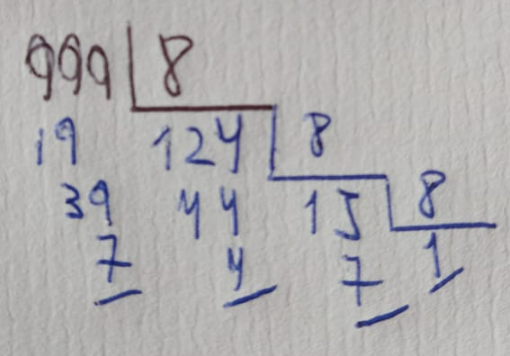 999 8
19 124 8
39 44 15 8
7 4 7 1